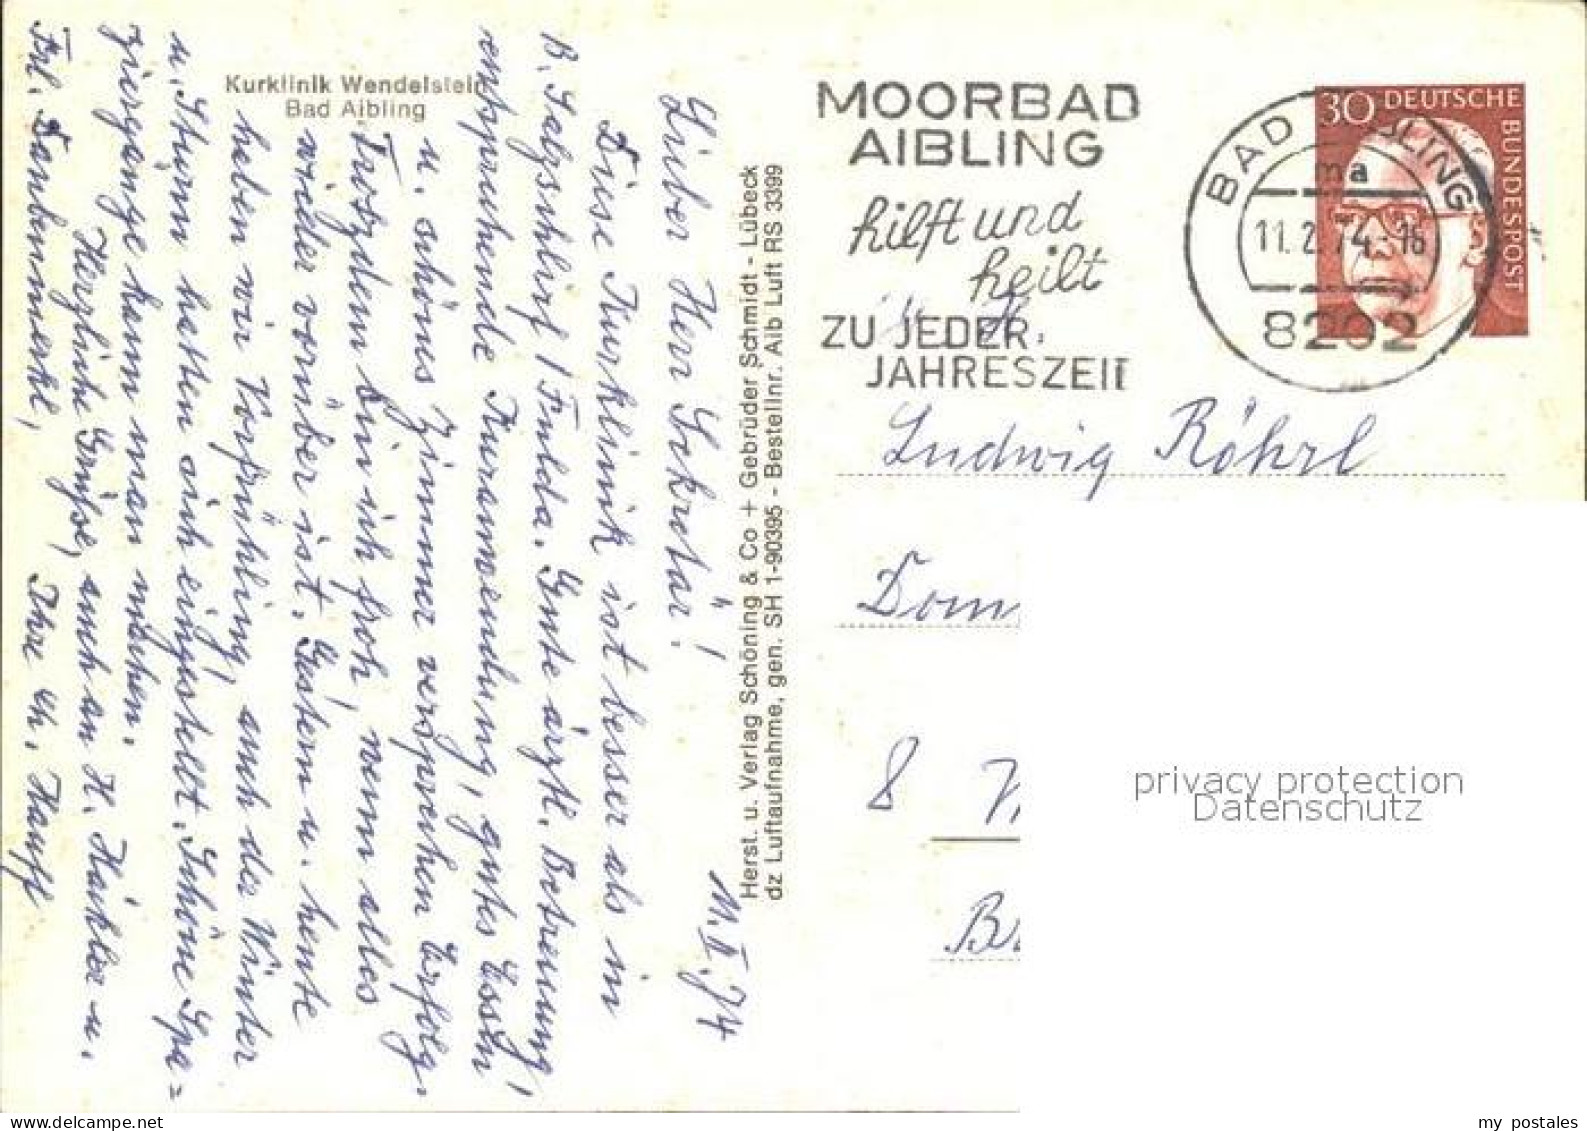 Kurklinik Wendelstein
Bad Aibling
11.II.74
Lieber Herr Sekretär!
Diese Kurklinik ist besser als in
B. Salzschlirf / Fulda. Gute ärztl. Betreuung,
entsprechende Kuranwendung, gutes Essen
u. schönes Zimmer versprechen Erfolg.
Trotzdem bin ich froh, wenn alles
wieder vorüber ist. Gestern u. heute
haben wir Vorfrühling, auch der Winter
u. Sturm hatten sich eingestellt. Schöne Spa=
ziergänge kann man machen.
Herzliche Grüße, auch an H. Häckler u.
Frl. Daubenmerkl,
Ihre Ch. Hauff
Herst. u. Verlag Schöning & Co + Gebrüder Schmidt - Lübeck
dz Luftaufnahme, gen. SH 1-90395 - Bestellnr. Aib Luft RS 3399
MOORBAD
AIBLING
hilft und
heilt
ZU JEDER
JAHRESZEIT
BAD AIBLING
ma
11.2.74-16
8202
30 DEUTSCHE
BUNDESPOST
Ludwig Röhrl
Dom
8
privacy protection
Datenschutz
my postales